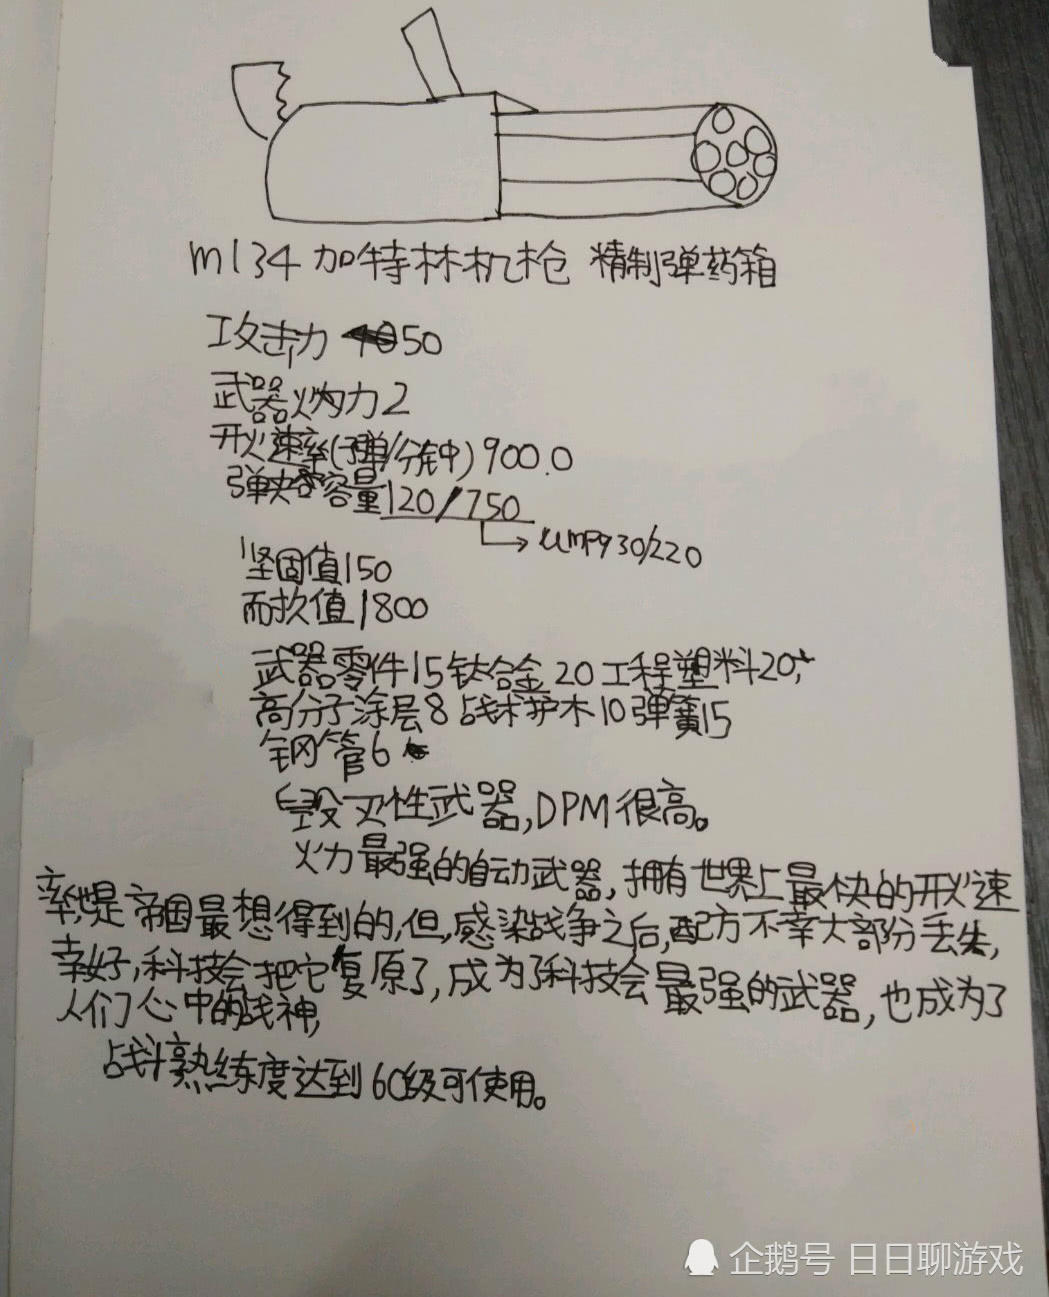 m134 加特林机枪 精制弹药箱
攻击力 50
武器火力2
开火速率(子弹/分钟)900.0
弹夹容量120/750
ump9 30/220
坚固值150
耐抗值1800
武器零件15钛合金20工程塑料20,
高分子涂层8战术护木10弹簧15
钢管6
毁灭性武器,DPM很高。
火力最强的自动武器,拥有世界上最快的开火速
率,是帝国最想得到的,但,感染战争之后,配方不幸大部份丢失,
幸好,科技会把它复原了,成为了科技会最强的武器,也成为了
人们心中的战神,
战斗熟练度达到60级可使用。
企鹅号 日日聊游戏